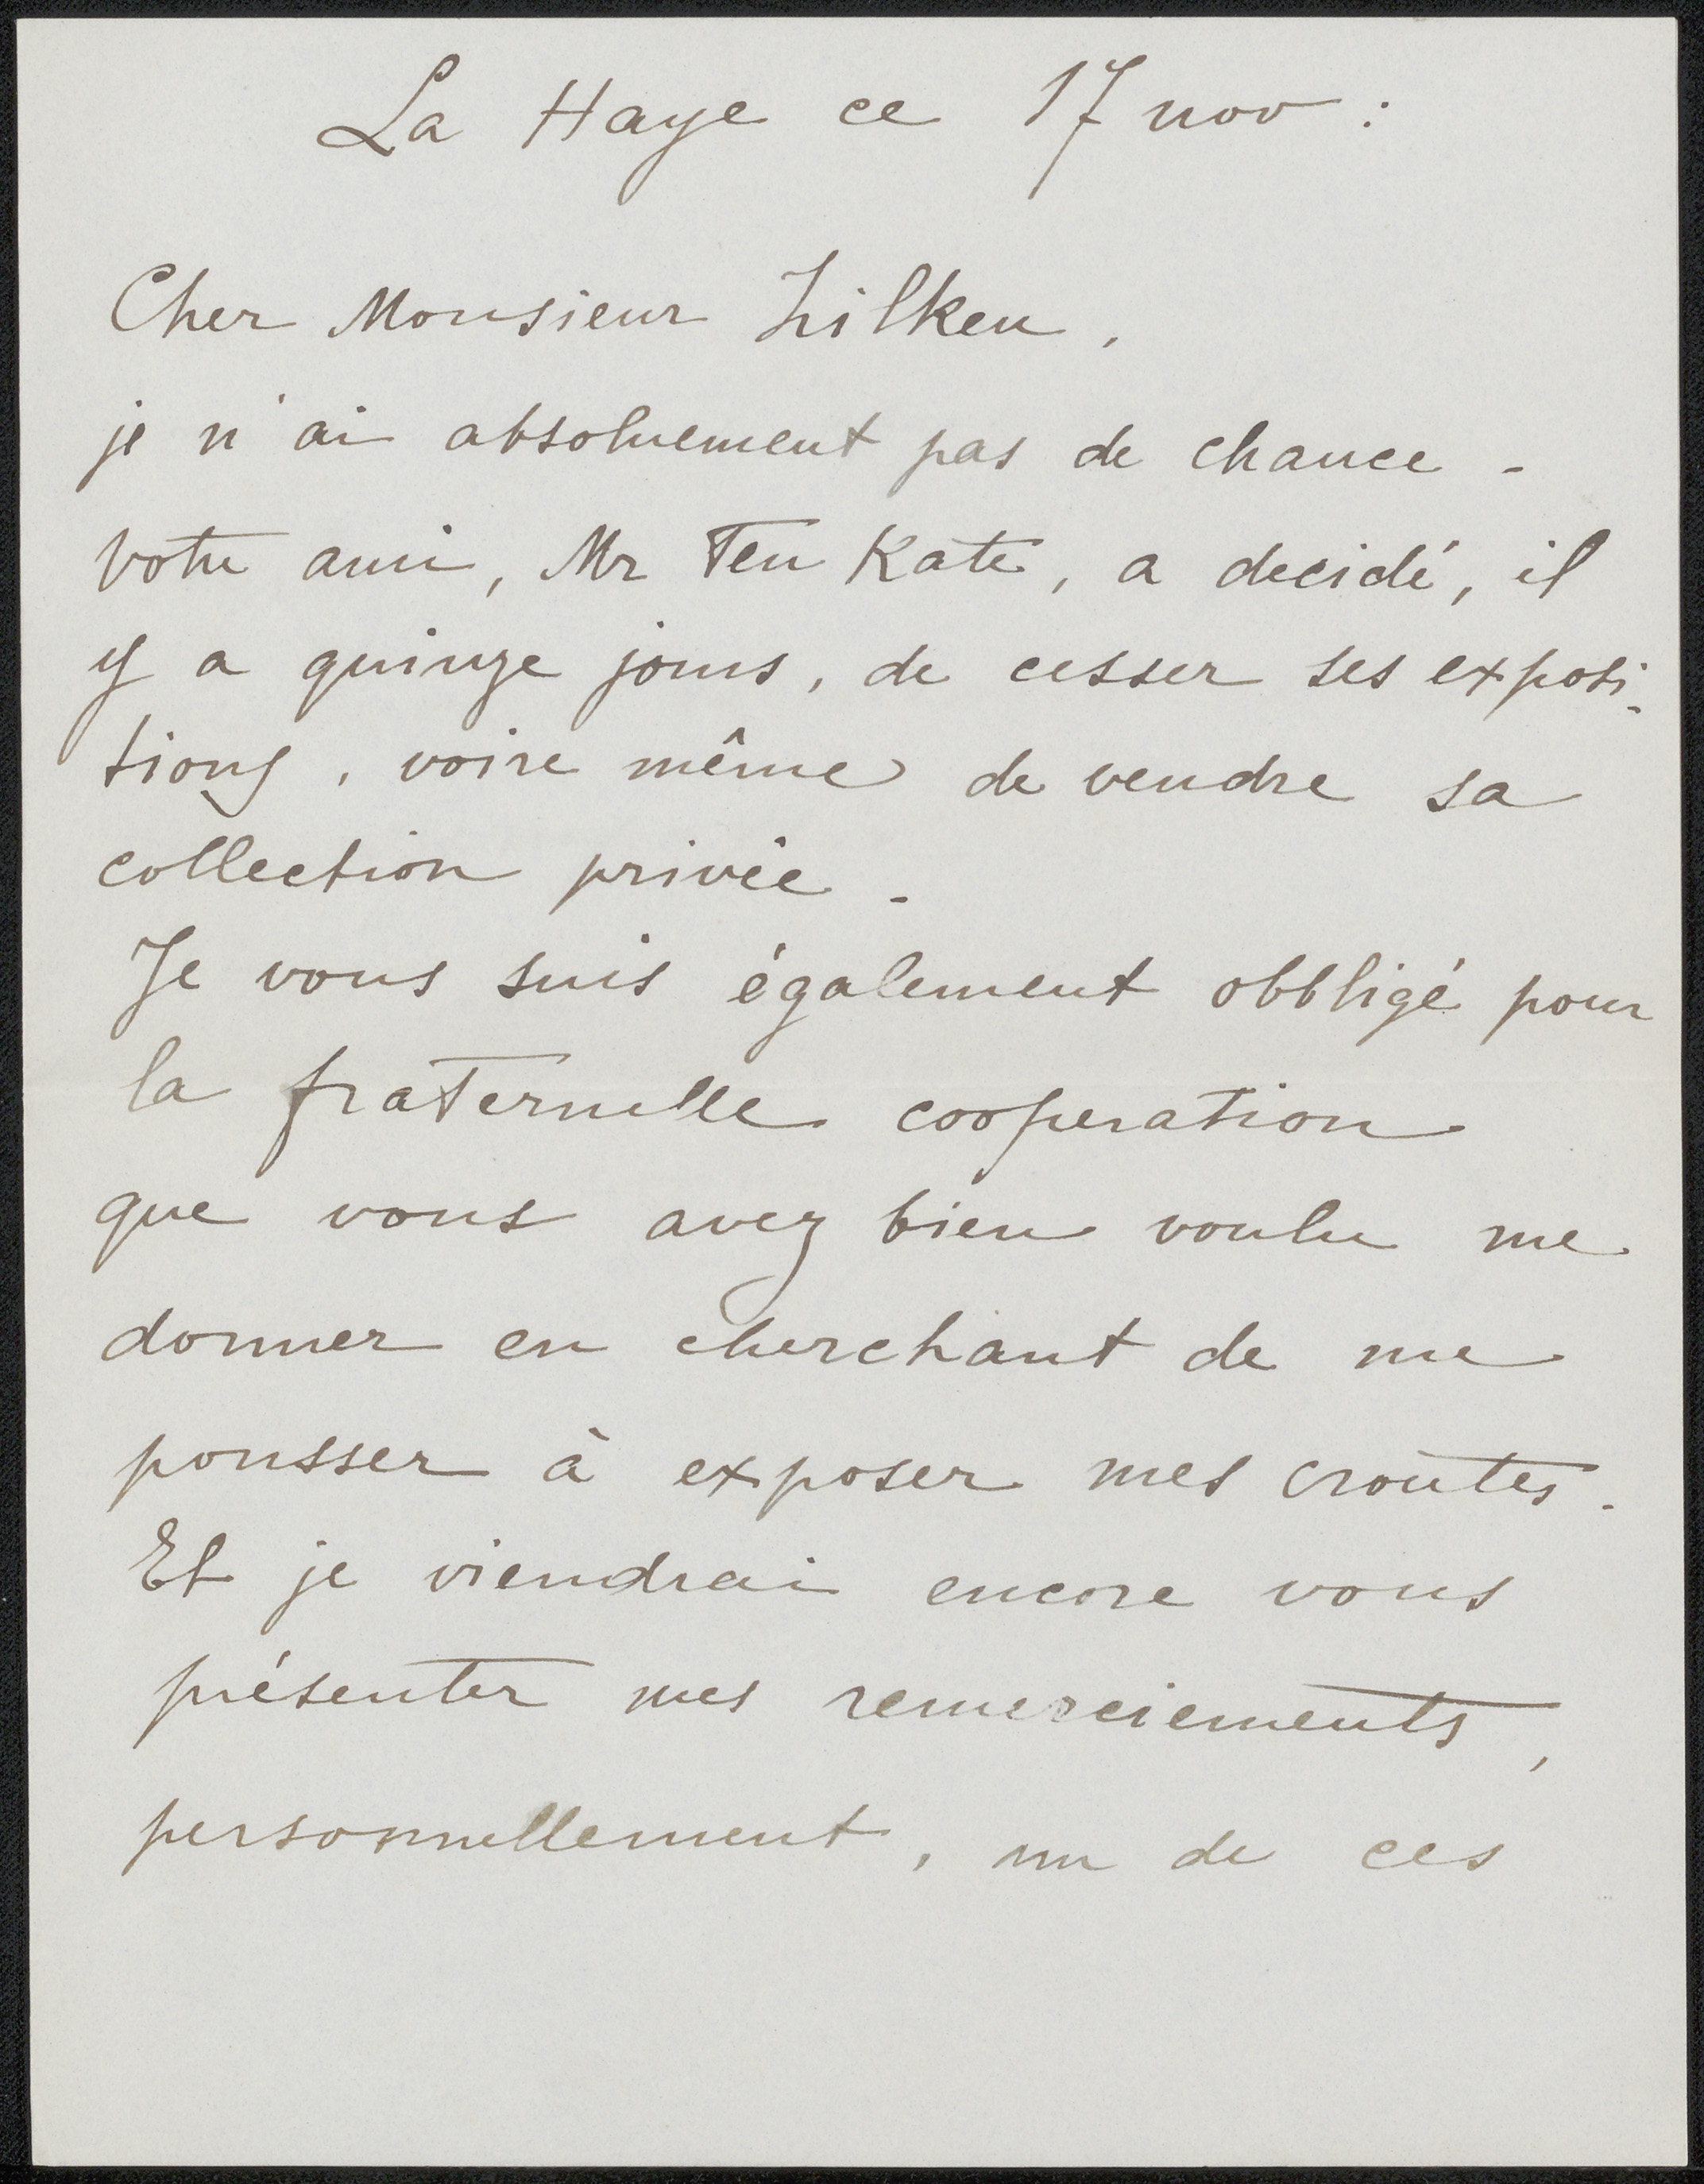 La Haye ce 17 nov :
Cher Monsieur Zilken,
je n'ai absoluement pas de chance -
votre ami, Mr Ten Kate, a decidé, il
y a quinze jours, de cesser ses exposi-
tions, voire même de vendre sa
collection privée.
Je vous suis également obbligé pour
la fraternelle cooperation
que vous avez bien voulu me
donner en cherchant de me
pousser à exposer mes croûtes.
Et je viendrai encore vous
présenter mes remerciements,
personnellement, un de ces